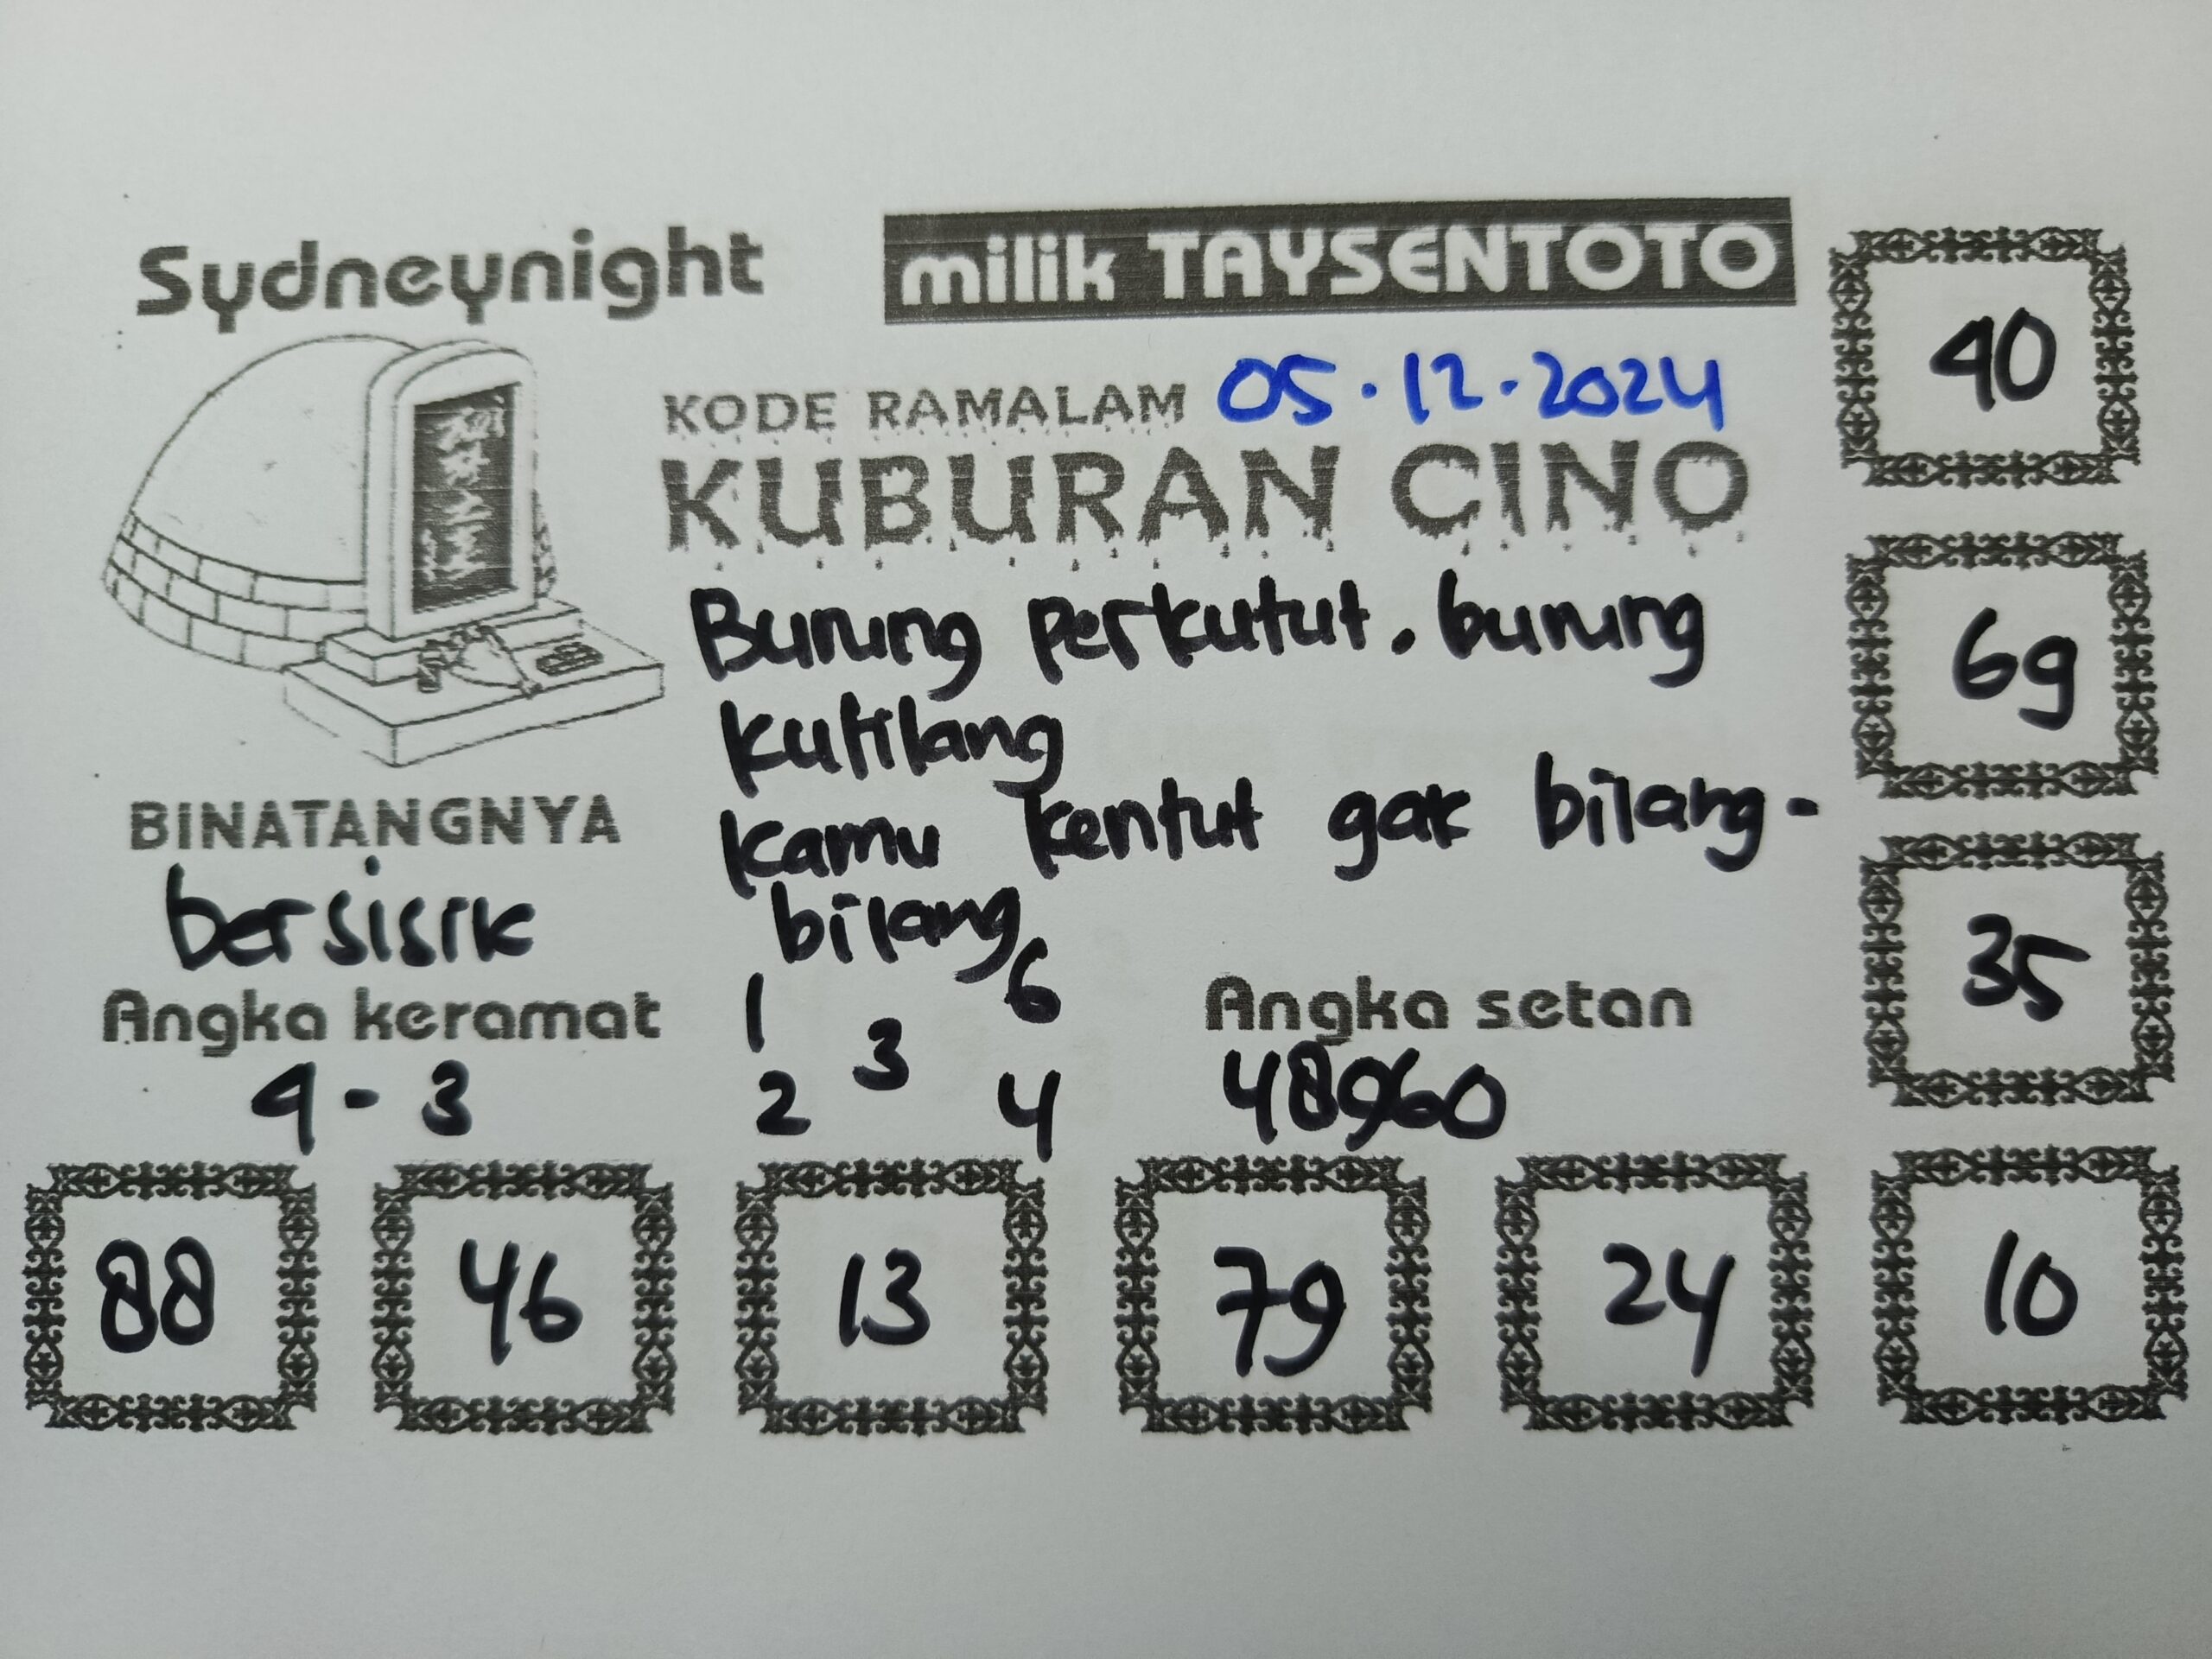 Sydneynight
milik TAYSENTOTO
KODE RAMALAM 05.12.2024
KUBURAN CINO
Burung perkutut. burung
kutilang
kamu kentut gak bilang-
bilang
BINATANGNYA
bersisik
Angka keramat
9 - 3
1 6
3
2 4
Angka setan
48960
40
69
35
88 46 13 79 24 10